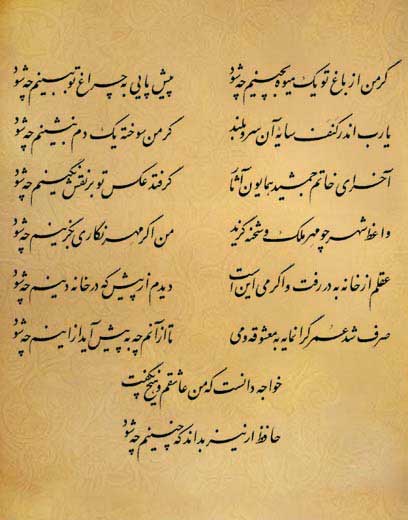 گر من از باغ تو یک میوه بچینم چه شود    پیش پایی به چراغ تو ببینم چه شود
یارب اندر کنف سایهٔ آن سرو بلند    گر من سوخته یک دم بنشینم چه شود
آخر ای خاتم جمشید همایون آثار    گر فتد عکس تو بر نقش نگینم چه شود
واعظ شهر چو مهر ملک و شحنه گزید    من اگر مهر نگاری بگزینم چه شود
عقلم از خانه به در رفت و اگر می این است    دیدم از پیش که در خانه دینم چه شود
صرف شد عمر گرانمایه به معشوقه و می    تا از آنم چه به پیش آید از اینم چه شود
خواجه دانست که من عاشقم و هیچ نگفت
حافظ ار نیز بداند که چنینم چه شود